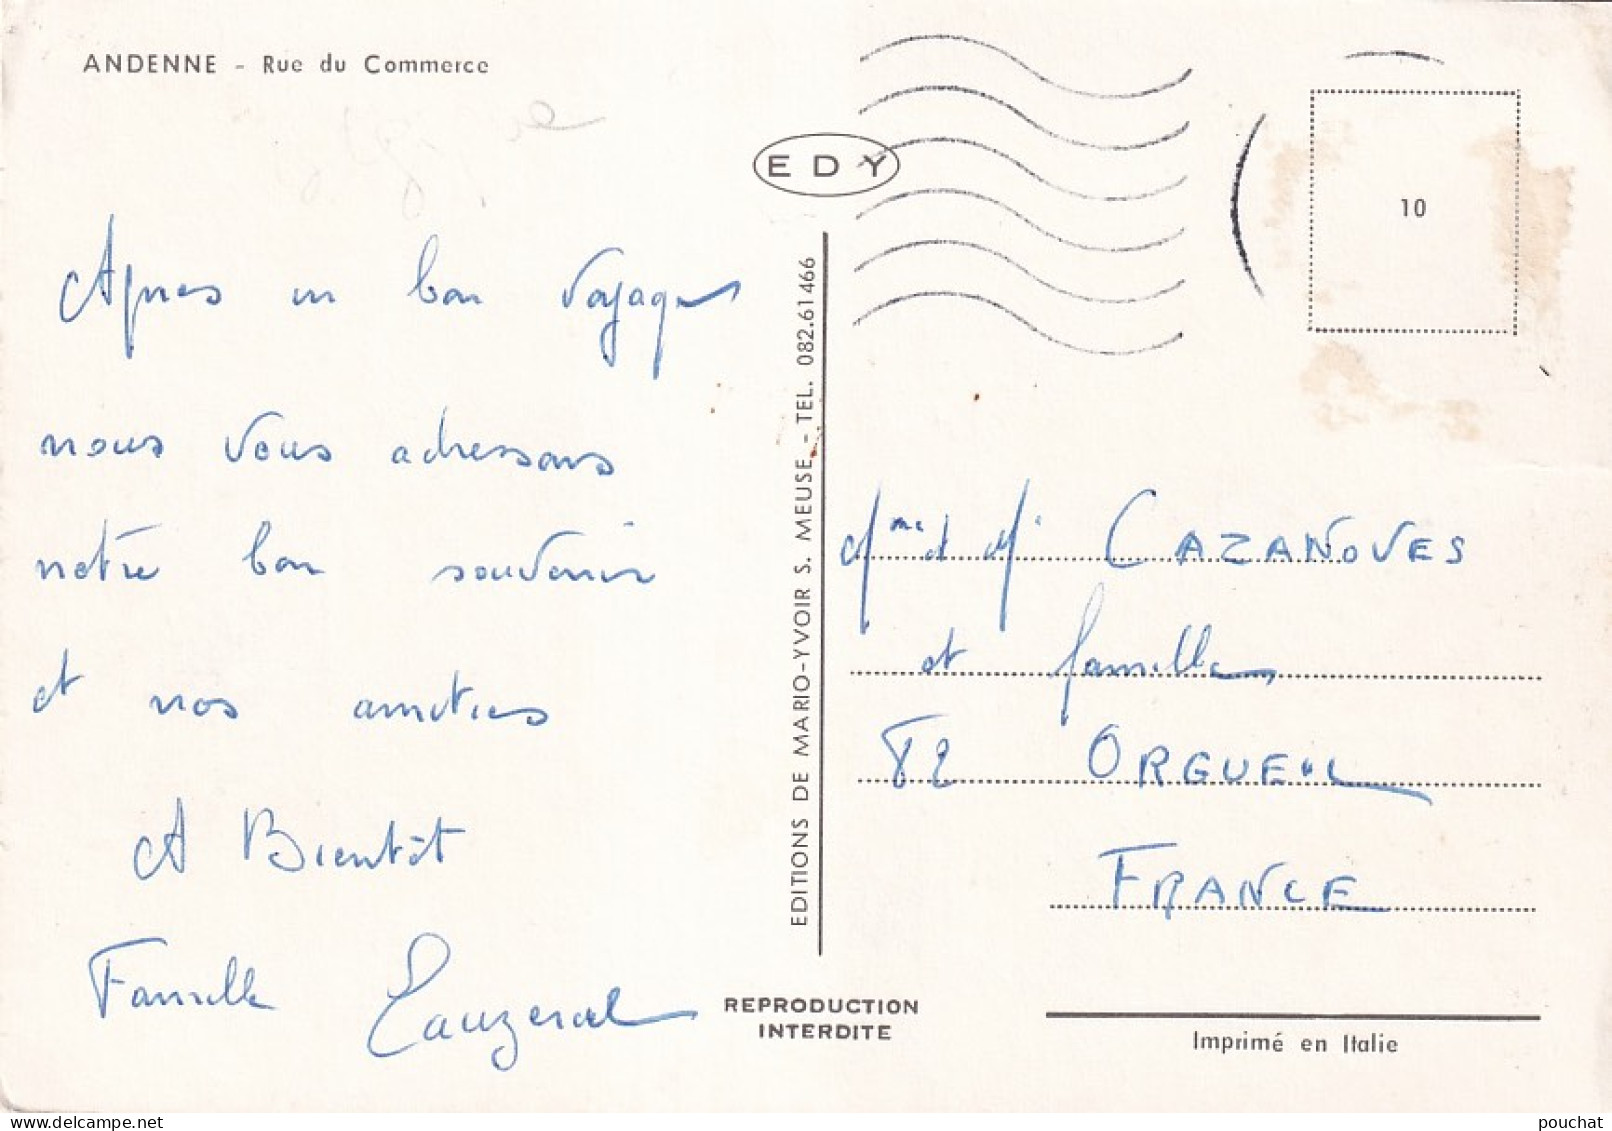 ANDENNE - Rue du Commerce
EDY
10
Apres un bon voyage
nous vous adressons
notre bon souvenir
et nos amities
A Bientôt
Famille
EDITIONS DE MARIO-YVOIR S. MEUSE - TEL. 082.61466
Mme et Mr CAZANOVES
et famille
82 ORGUEIL
FRANCE
REPRODUCTION
INTERDITE
Imprimé en Italie
pouchat